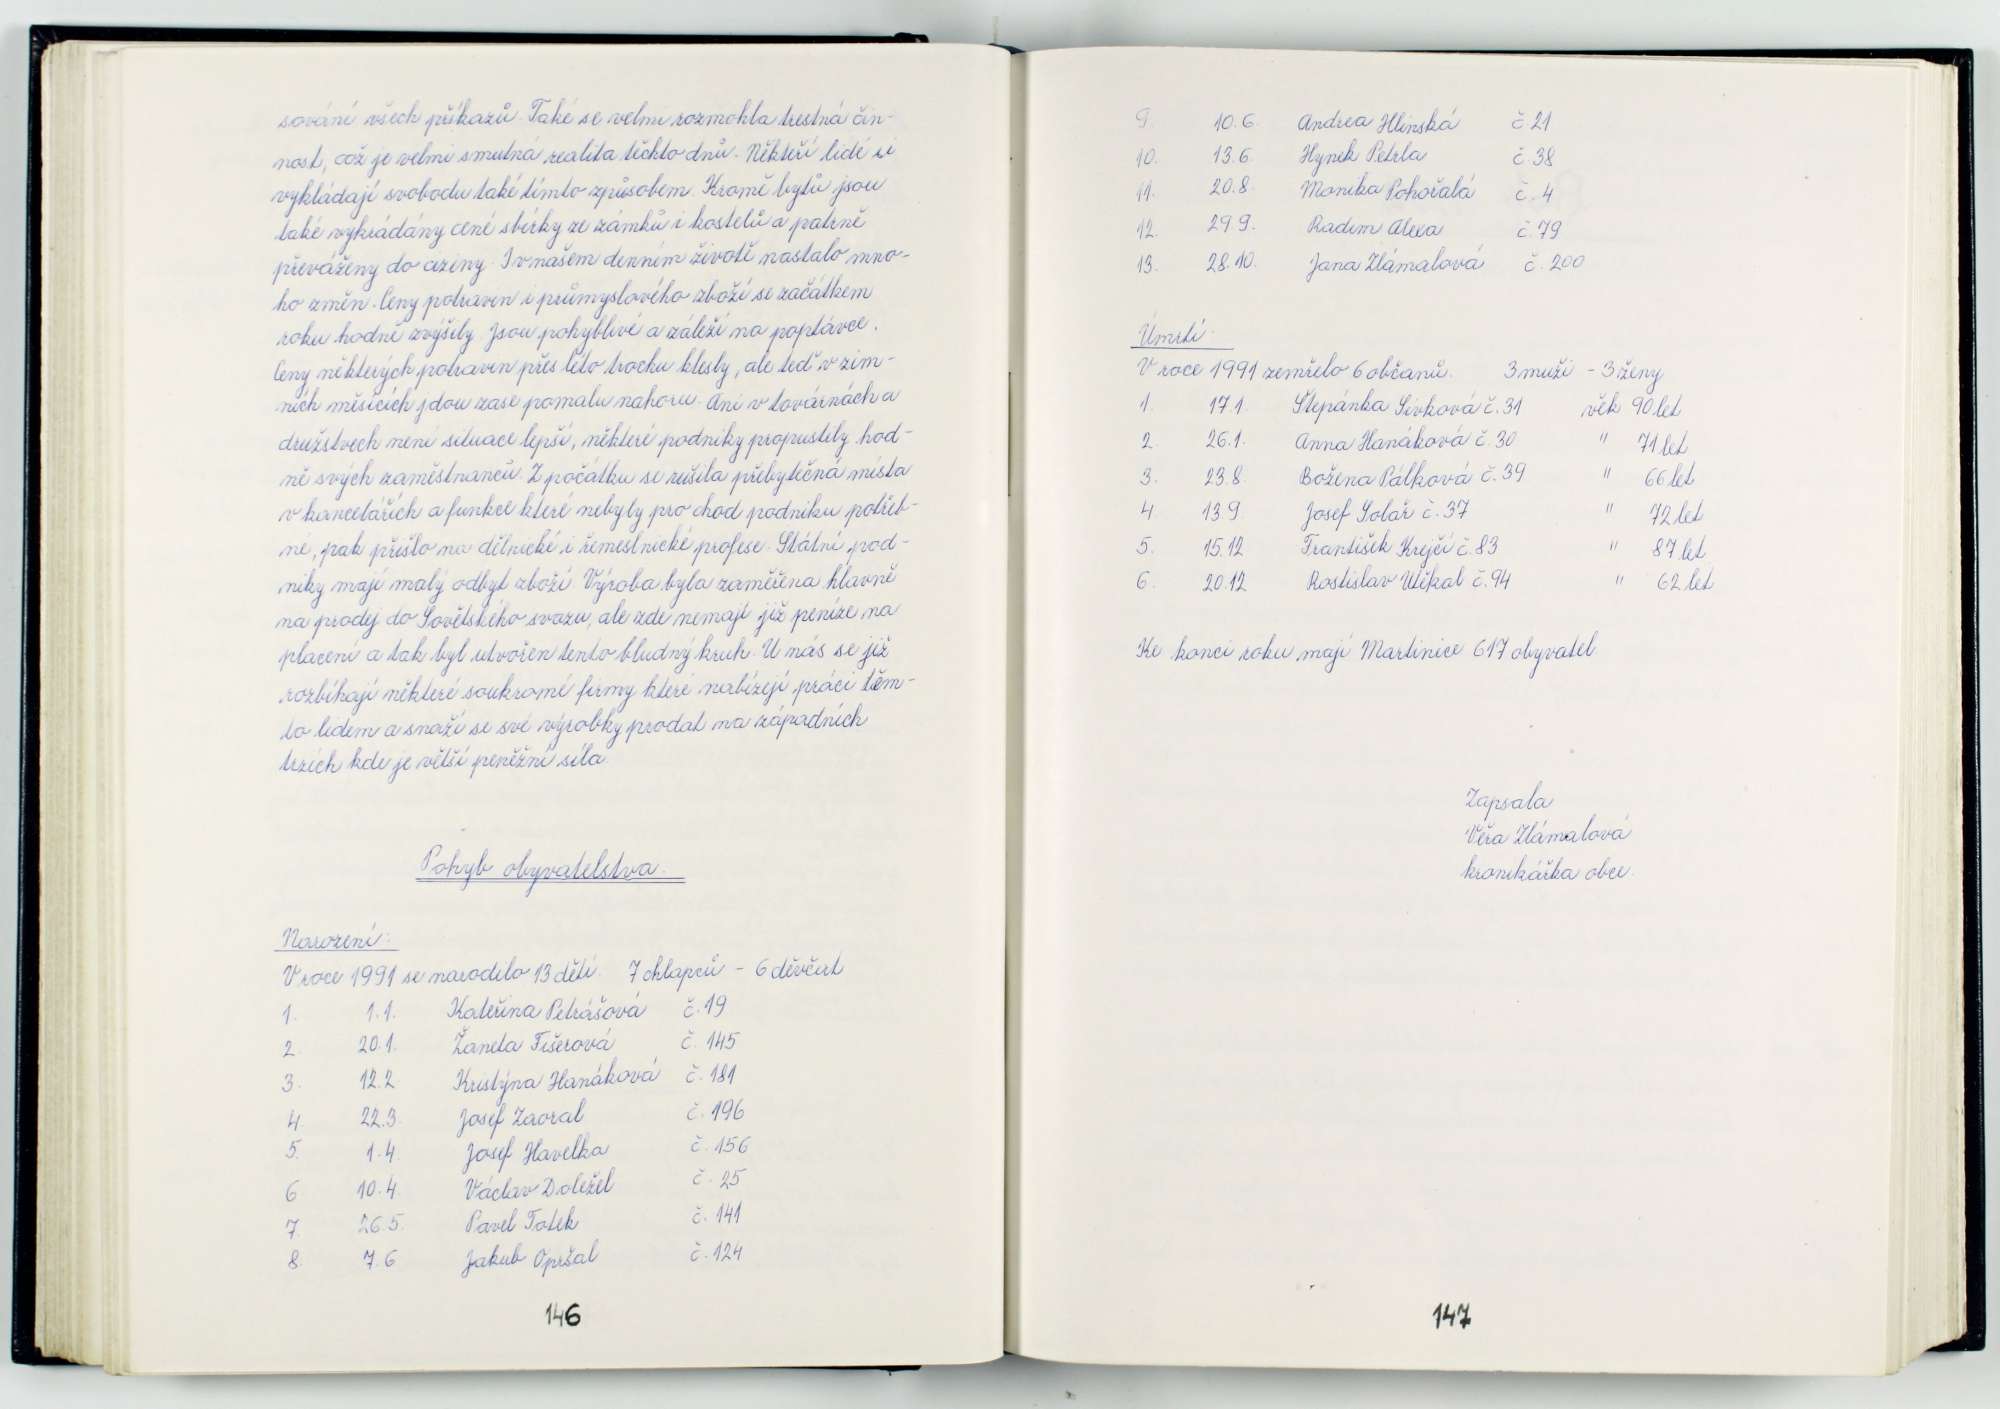 sování všech příkazů. Také se velmi rozmohla trestná čin-
nost, což je velmi smutná realita těchto dnů. Někteří lidé si
vykládají svobodu také tímto způsobem. Kromě bytů jsou
také vykrádány cené sbírky ze zámků i kostelů a patrně
převáženy do ciziny. I v našem denním životě nastalo mno-
ho změn. Ceny potravin i průmyslového zboží se začátkem
roku hodně zvýšily. Jsou pohyblivé a záleží na poptávce.
Ceny některých potravin přes léto trochu klesly, ale teď v zim-
ních měsících jdou zase pomalu nahoru. Ani v továrnách a
družstvech není situace lepší, některé podniky propustily hod-
ně svých zaměstnanců. Z počátku se rušila přebytečná místa
v kancelářích a funkce které nebyly pro chod podniku potřeb-
né, pak přišlo na dělnické i řemeslnické profese. Státní pod-
niky mají malý odbyt zboží. Výroba byla zaměřena hlavně
na prodej do Sovětského svazu, ale zde nemají již peníze na
placení a tak byl utvořen tento bludný kruh. U nás se již
rozbíhají některé soukromé firmy které nabízejí práci těm-
to lidem a snaží se své výrobky prodat na západních
trzích kde je větší peněžní síla.
Pohyb obyvatelstva.
Narození:
V roce 1991 se narodilo 13 dětí. 7 chlapců - 6 děvčat
1. 1.1. Kateřina Petrášová č. 19
2. 20.1. Žaneta Fišerová č. 145
3. 12.2 Kristýna Hanáková č. 181
4. 22.3. Josef Zaoral č. 196
5. 1.4 Josef Havelka č. 156
6 10.4 Václav Doležel č. 25
7. 26.5. Pavel Fotek č. 141
8. 7.6 Jakub Opršal č. 124
146
9. 10.6. Andrea Hlinská č. 21
10. 13.6. Hynek Petrla č. 38
11. 20.8. Monika Pohořalá č. 4
12. 29.9. Radim Alexa č. 79
13. 28.10. Jana Zlámalová č. 200
Úmrtí.
V roce 1991 zemřelo 6 občanů. 3 muži - 3 ženy
1. 17.1. Štěpánka Sívková č. 31 věk 90 let
2. 26.1. Anna Hanáková č. 30 " 71 let
3. 23.8. Božena Pálková č. 39 " 66 let
4. 13.9. Josef Solař č. 37 " 72 let
5. 15.12 František Krejčí č. 83 " 87 let
6. 20.12 Rostislav Utíkal č. 94 " 62 let
Ke konci roku mají Martinice 617 obyvatel.
Zapsala
Věra Zlámalová
kronikářka obce.
147